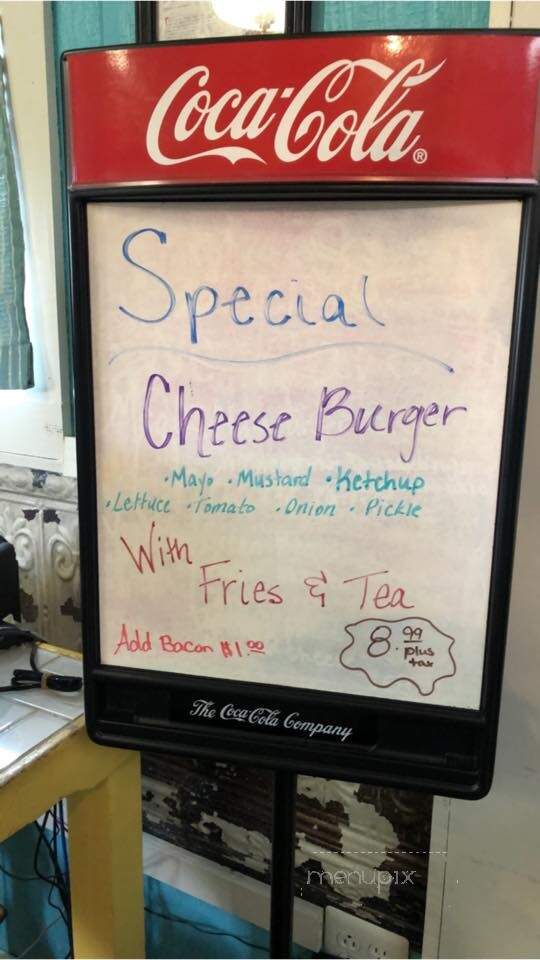 Coca-Cola®
Special
Cheese Burger
·Mayo ·Mustard ·Ketchup
·Lettuce ·Tomato ·Onion · Pickle
With
Fries & Tea
Add Bacon $1.00
8.99 plus tax
The Coca-Cola Company
menupix